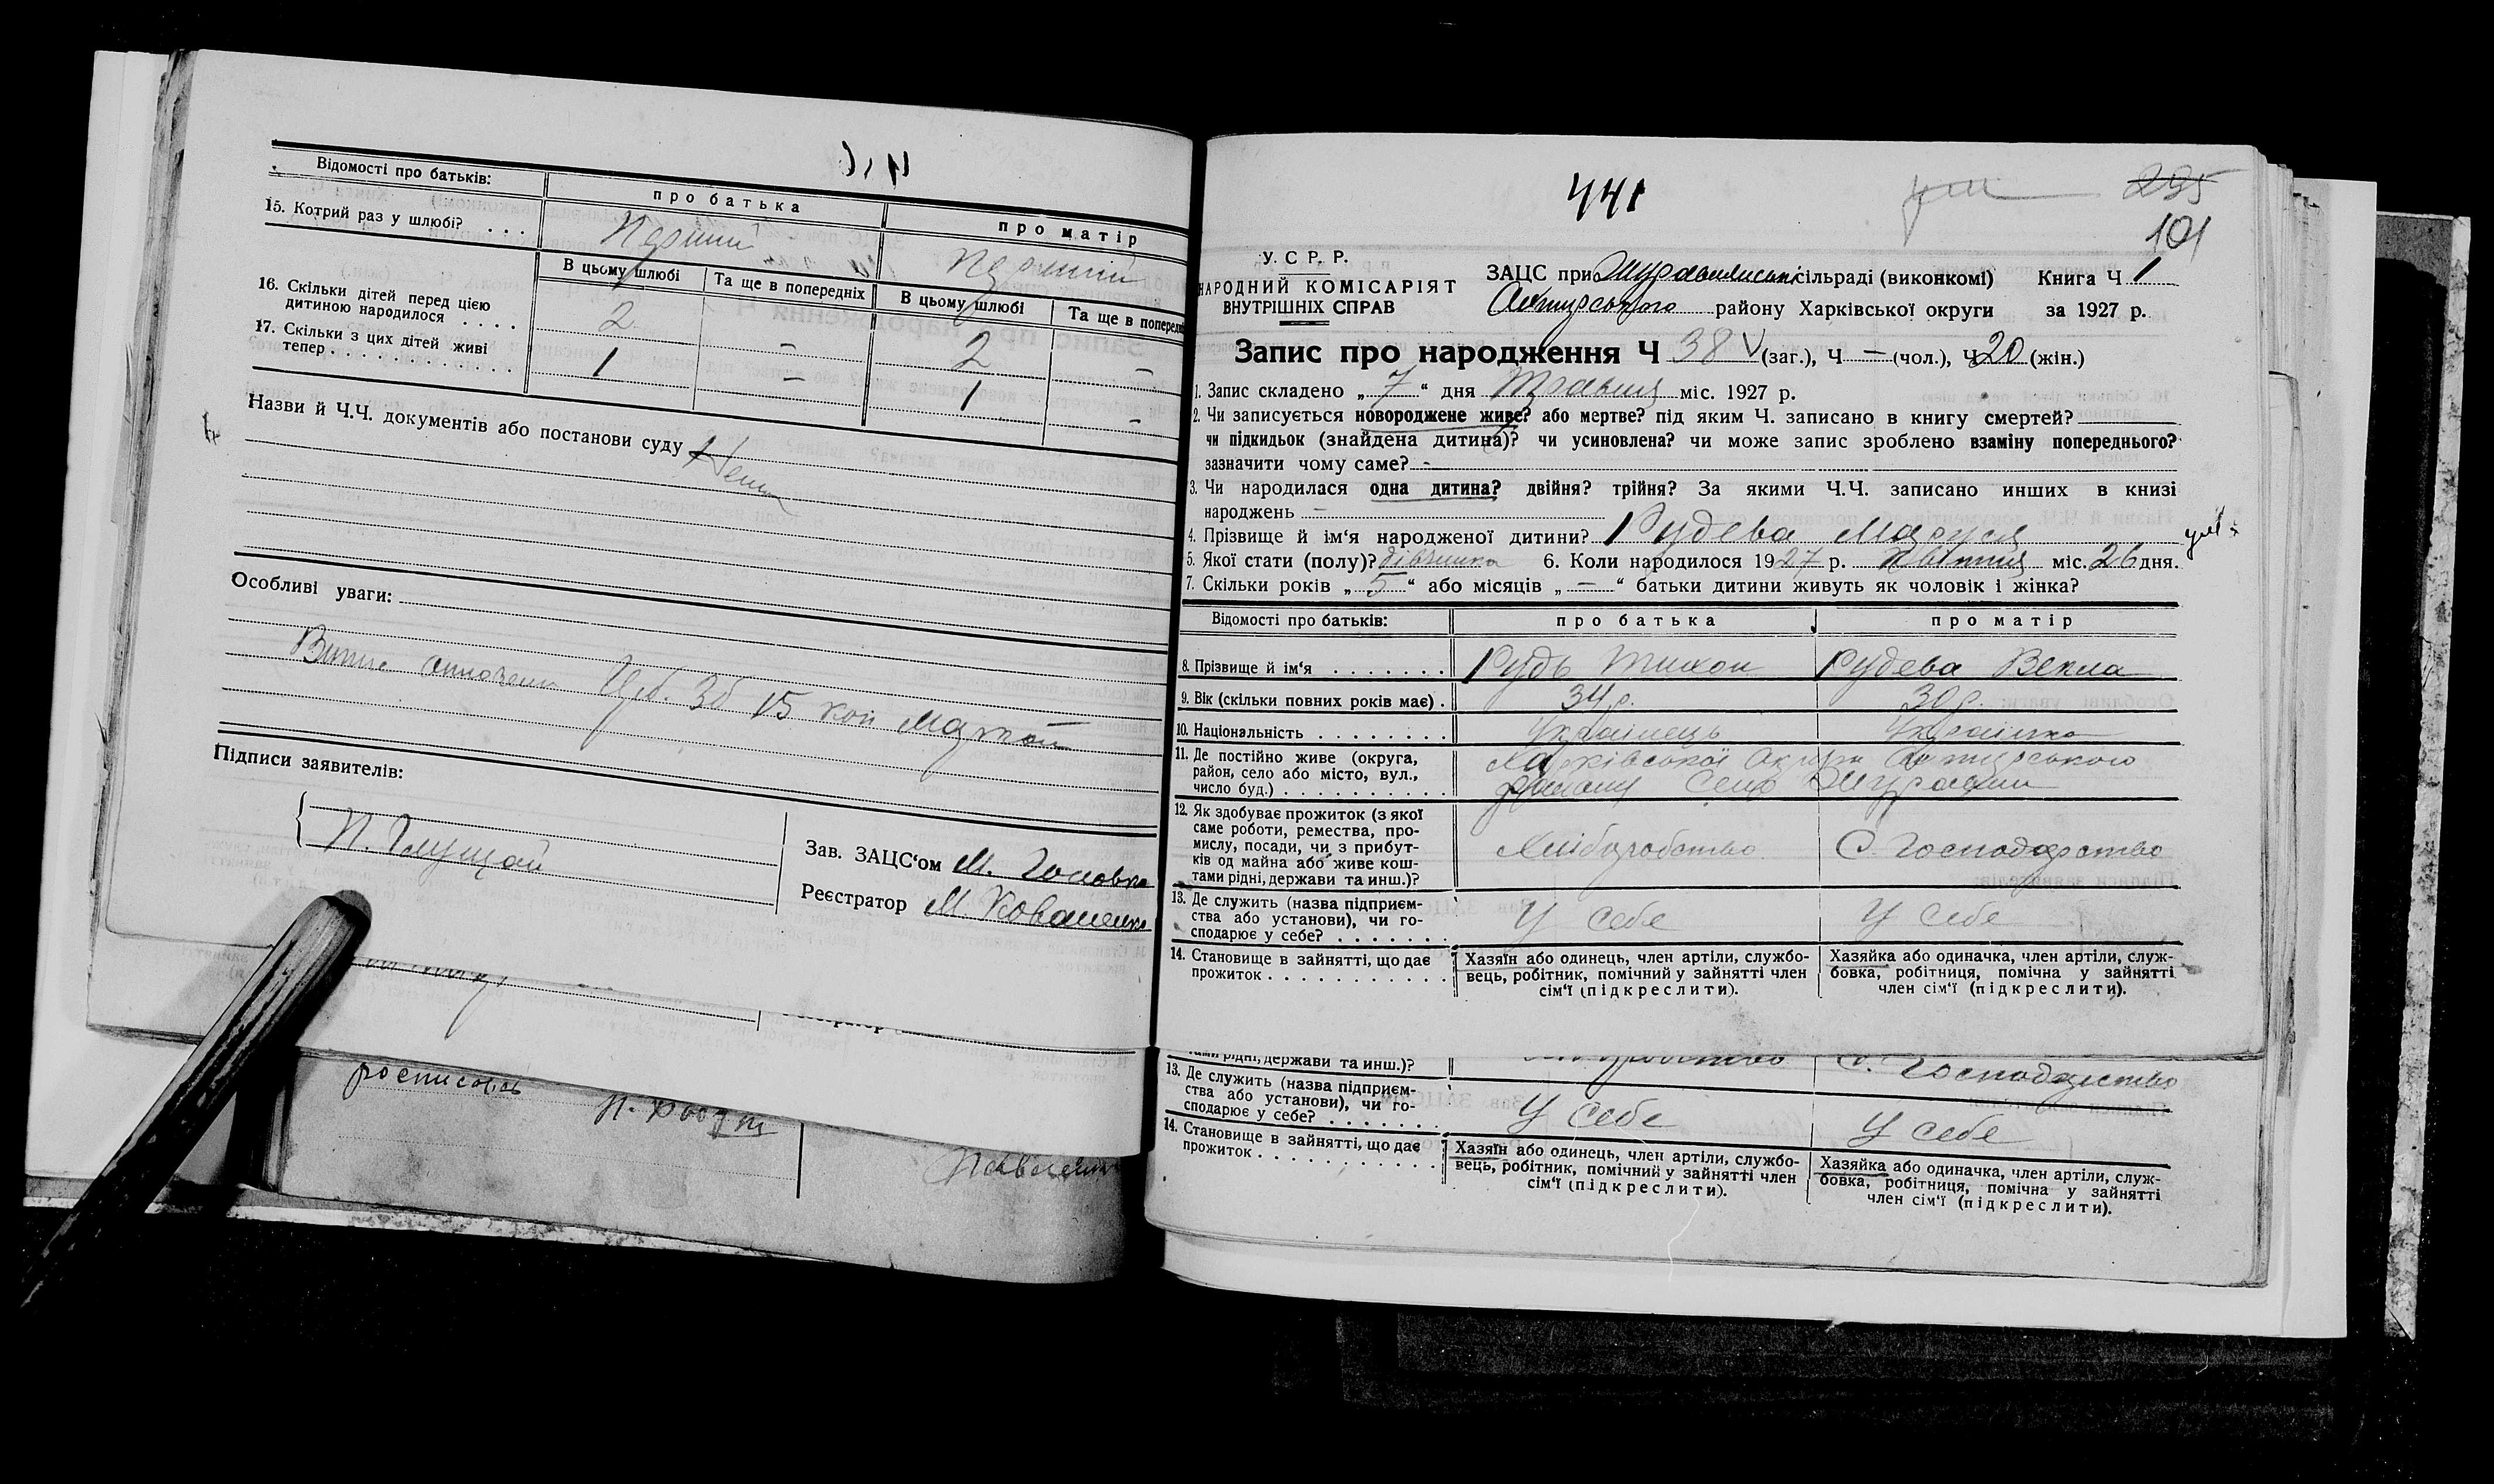 Відомості про батьків:
про батька
про матір
15. Котрий раз у шлюбі? . . .
Перший
Перший
В цьому шлюбі
Та ще в попередніх
В цьому шлюбі
Та ще в попередні
16. Скільки дітей перед цією
дитиною народилося . . . .
2
–
2
–
17. Скільки з цих дітей живі
тепер . . . . . . . . . . . .
1
–
1
–
Назви й Ч.Ч. документів або постанови суду Нема
Особливі уваги:
15 коп
Підписи заявителів:
П.
Зав. ЗАЦС'ом М. Головко
Реєстратор М. Коваленко
росписовсь
441
235
101
У. С. Р. Р.
НАРОДНИЙ КОМІСАРІЯТ
ВНУТРІШНІХ СПРАВ
ЗАЦС при сільраді (виконкомі) Книга Ч 1
району Харківської округи за 1927 р.
Запис про народження Ч 38 V (заг.), Ч — (чол.), Ч 20 (жін.)
1. Запис складено „ 7 “ дня Травня міс. 1927 р.
2. Чи записується новороджене живе? або мертве? під яким Ч. записано в книгу смертей?
чи підкидьок (знайдена дитина)? чи усиновлена? чи може запис зроблено взаміну попереднього?
зазначити чому саме? -
3. Чи народилася одна дитина? двійня? трійня? За якими Ч.Ч. записано инших в книзі
народжень –
4. Прізвище й ім'я народженої дитини? Рудева Маруся
5. Якої стати (полу)? дівчинка 6. Коли народилося 1927 р. Квітня міс. 26 дня.
7. Скільки років „ 5 “ або місяців „ — “ батьки дитини живуть як чоловік і жінка?
Відомості про батьків:
про батька
про матір
8. Прізвище й ім'я . . . . . . .
Рудь Тихон
Рудева Векла
9. Вік (скільки повних років має) .
34 р.
30 р.
10. Національність . . . . . . . .
Українець
Українка
11. Де постійно живе (округа,
район, село або місто, вул.,
число буд.) . . . . . . . . . .
Харківської Округи
Село
12. Як здобуває прожиток (з якої
саме роботи, ремества, про-
мислу, посади, чи з прибут-
ків од майна або живе кош-
тами рідні, держави та инш.)?
Хліборобство
С. Господарство
13. Де служить (назва підприєм-
ства або установи), чи го-
сподарює у себе? . . . . . . .
У себе
У себе
14. Становище в зайнятті, що дає
прожиток . . . . . . . . . . .
Хазяїн або одинець, член артіли, службо-
вець, робітник, помічний у зайнятті член
сім'ї (підкреслити).
Хазяйка або одиначка, член артіли, служ-
бовка, робітниця, помічна у зайнятті
член сім'ї (підкреслити).
тами рідні, держави та инш.)?
С. Господарство
13. Де служить (назва підприєм-
ства або установи), чи го-
сподарює у себе? . . . . . . .
У себе
У себе
14. Становище в зайнятті, що дає
прожиток . . . . . . . . . . .
Хазяїн або одинець, член артіли, службо-
вець, робітник, помічний у зайнятті член
сім'ї (підкреслити).
Хазяйка або одиначка, член артіли, служ-
бовка, робітниця, помічна у зайнятті
член сім'ї (підкреслити).